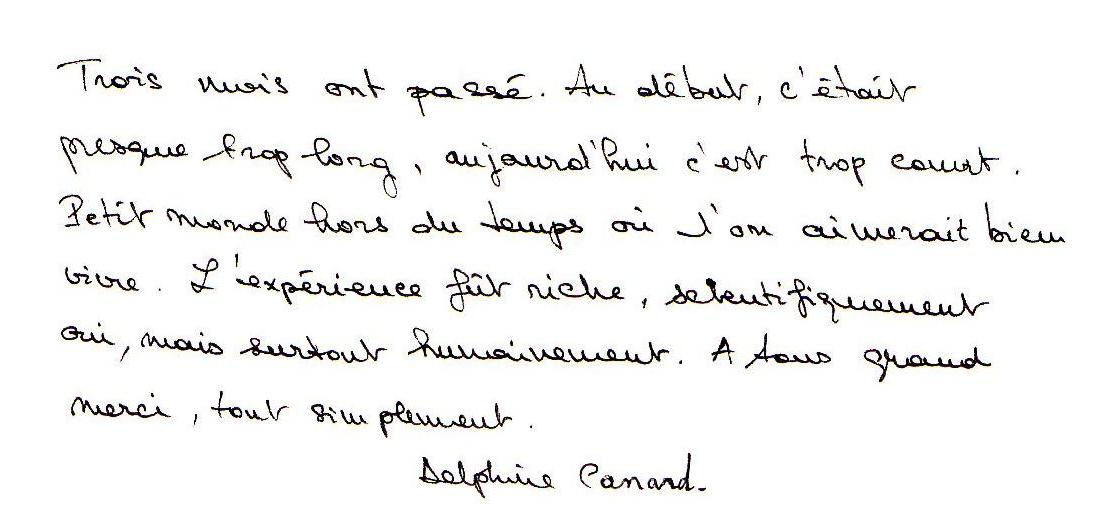 Trois mois ont passé. Au début, c'était
presque trop long, aujourd'hui c'est trop court.
Petit monde hors du temps où l'on aimerait bien
vivre. L'expérience fût riche, scientifiquement
oui, mais surtout humainement. A tous grand
merci, tout simplement.
Delphine Canard.